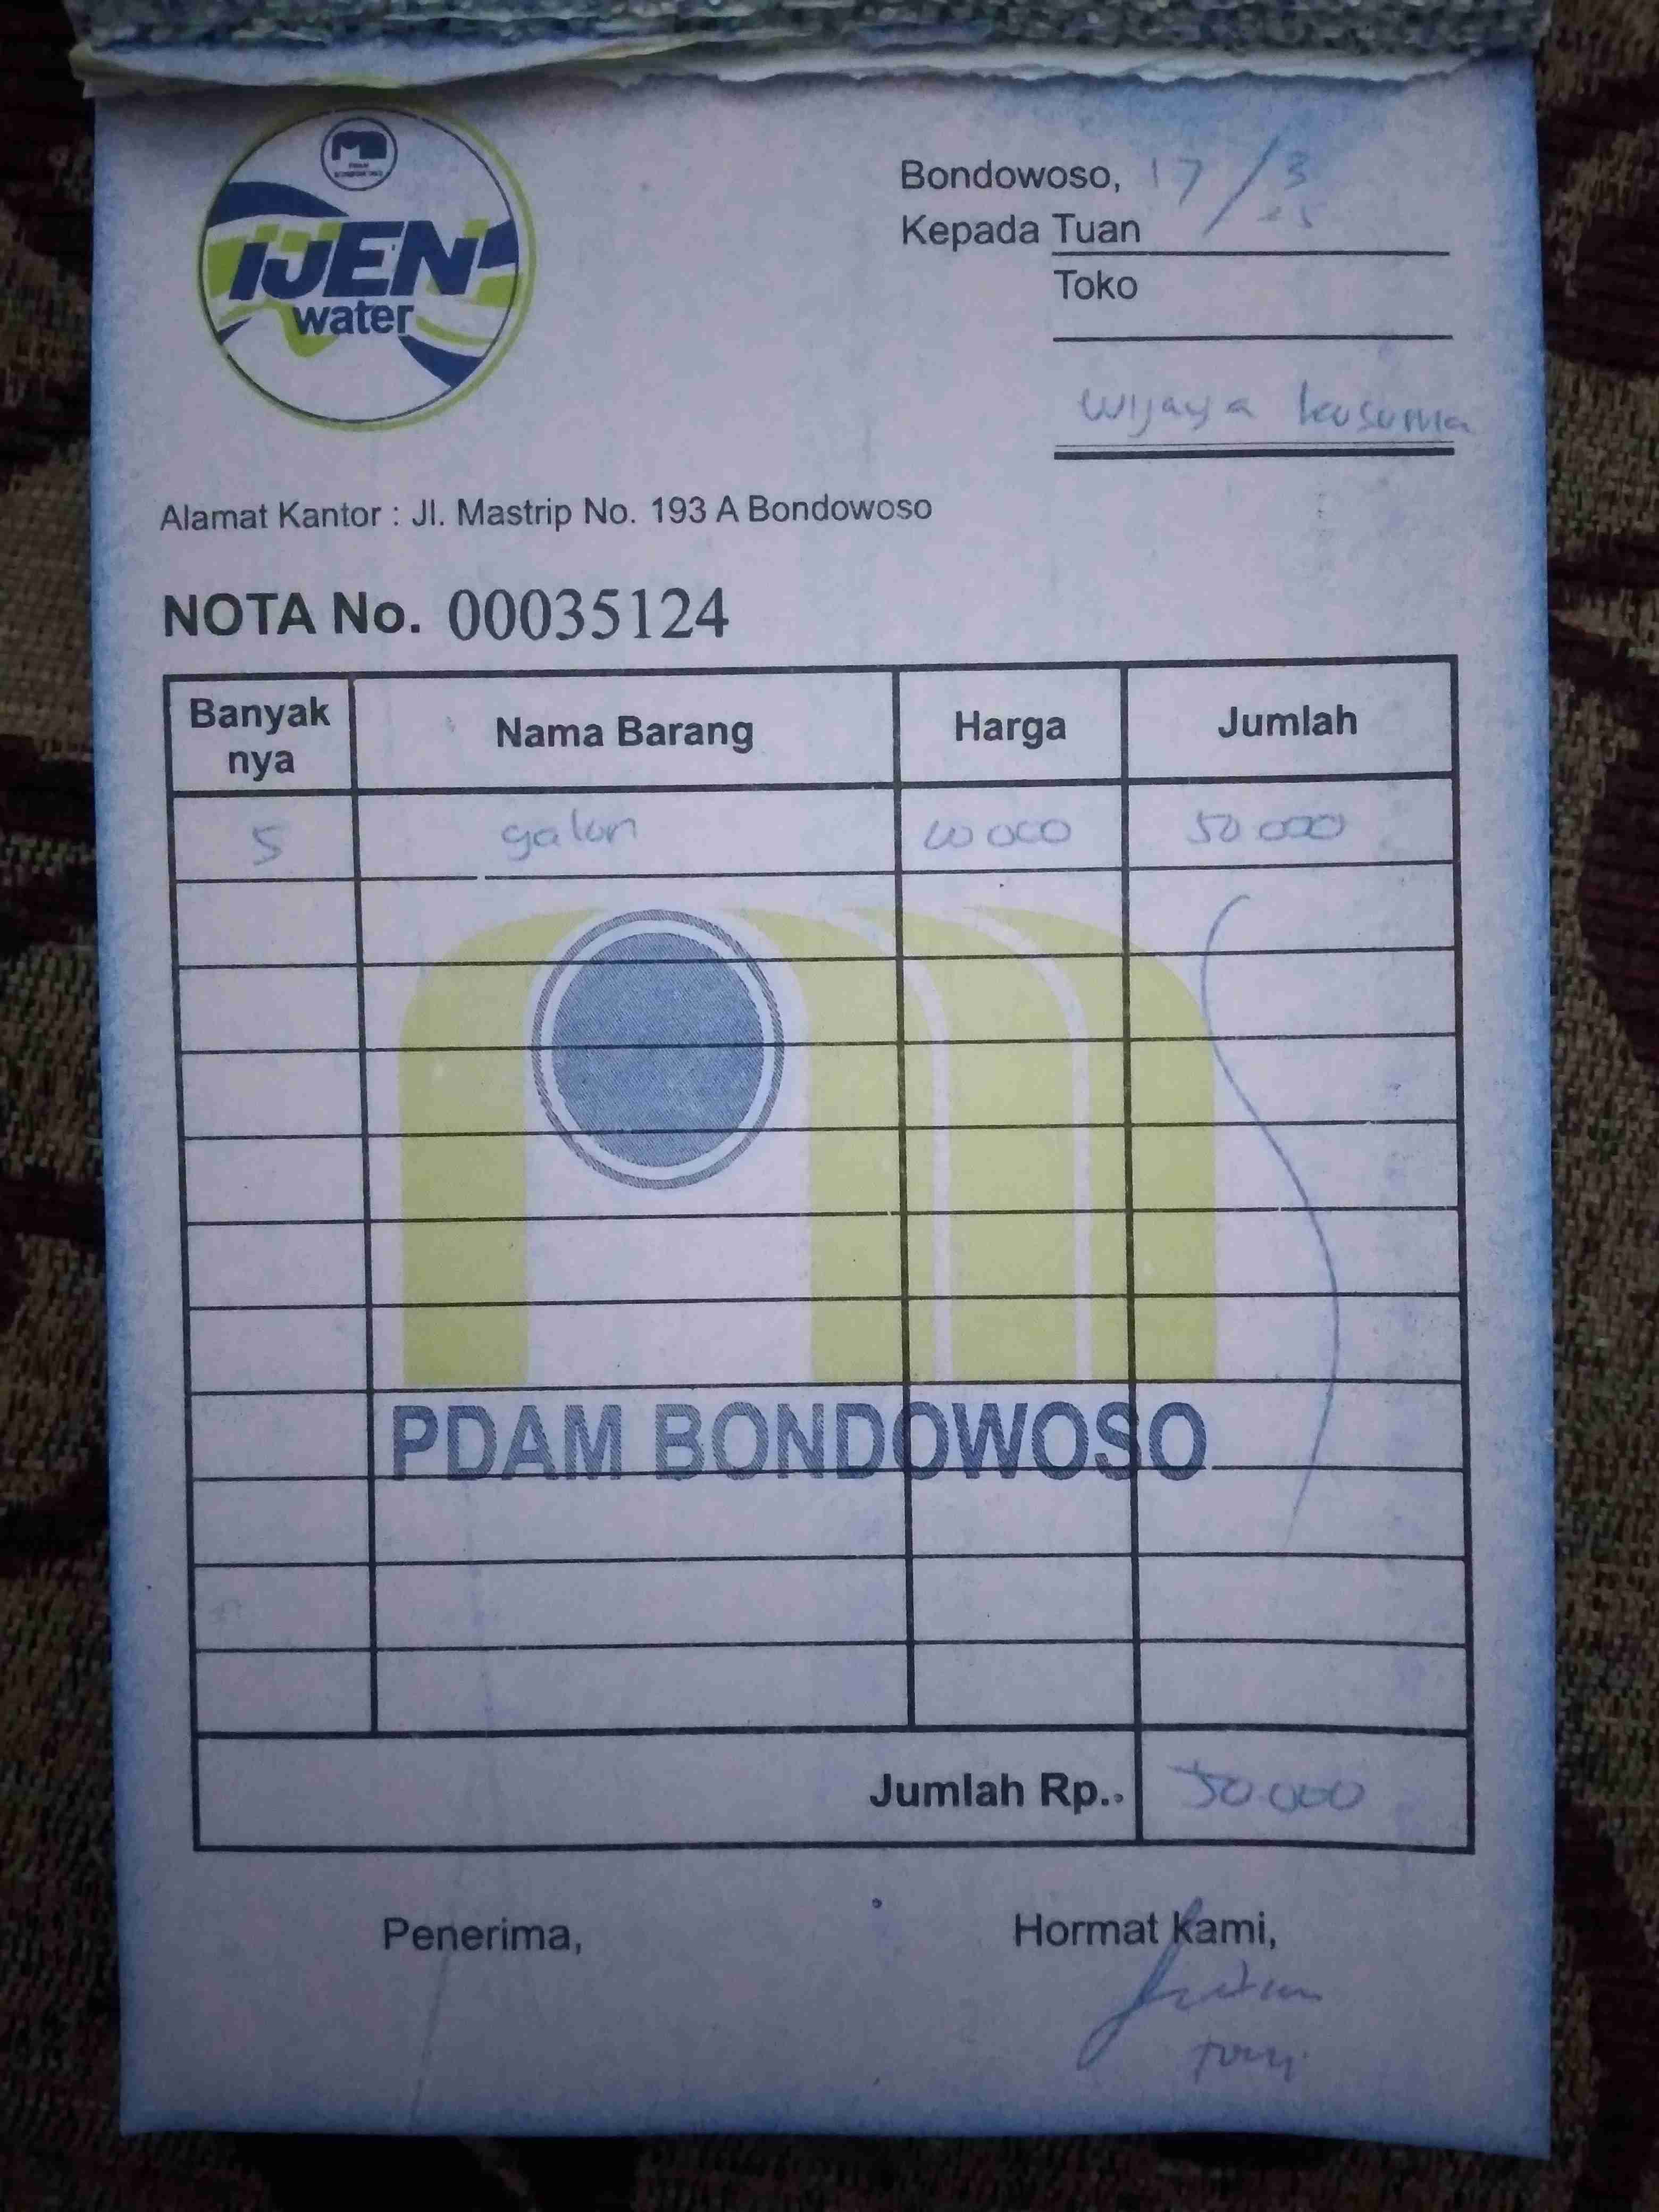 IJEN
water
Bondowoso, 17/3
25
Kepada Tuan
Toko
wijaya kusuma
Alamat Kantor : Jl. Mastrip No. 193 A Bondowoso
NOTA No. 00035124
Banyak nya Nama Barang Harga Jumlah
5 galon 10 000 50 000
PDAM BONDOWOSO
Jumlah Rp.. 50.000
Penerima, Hormat Kami,